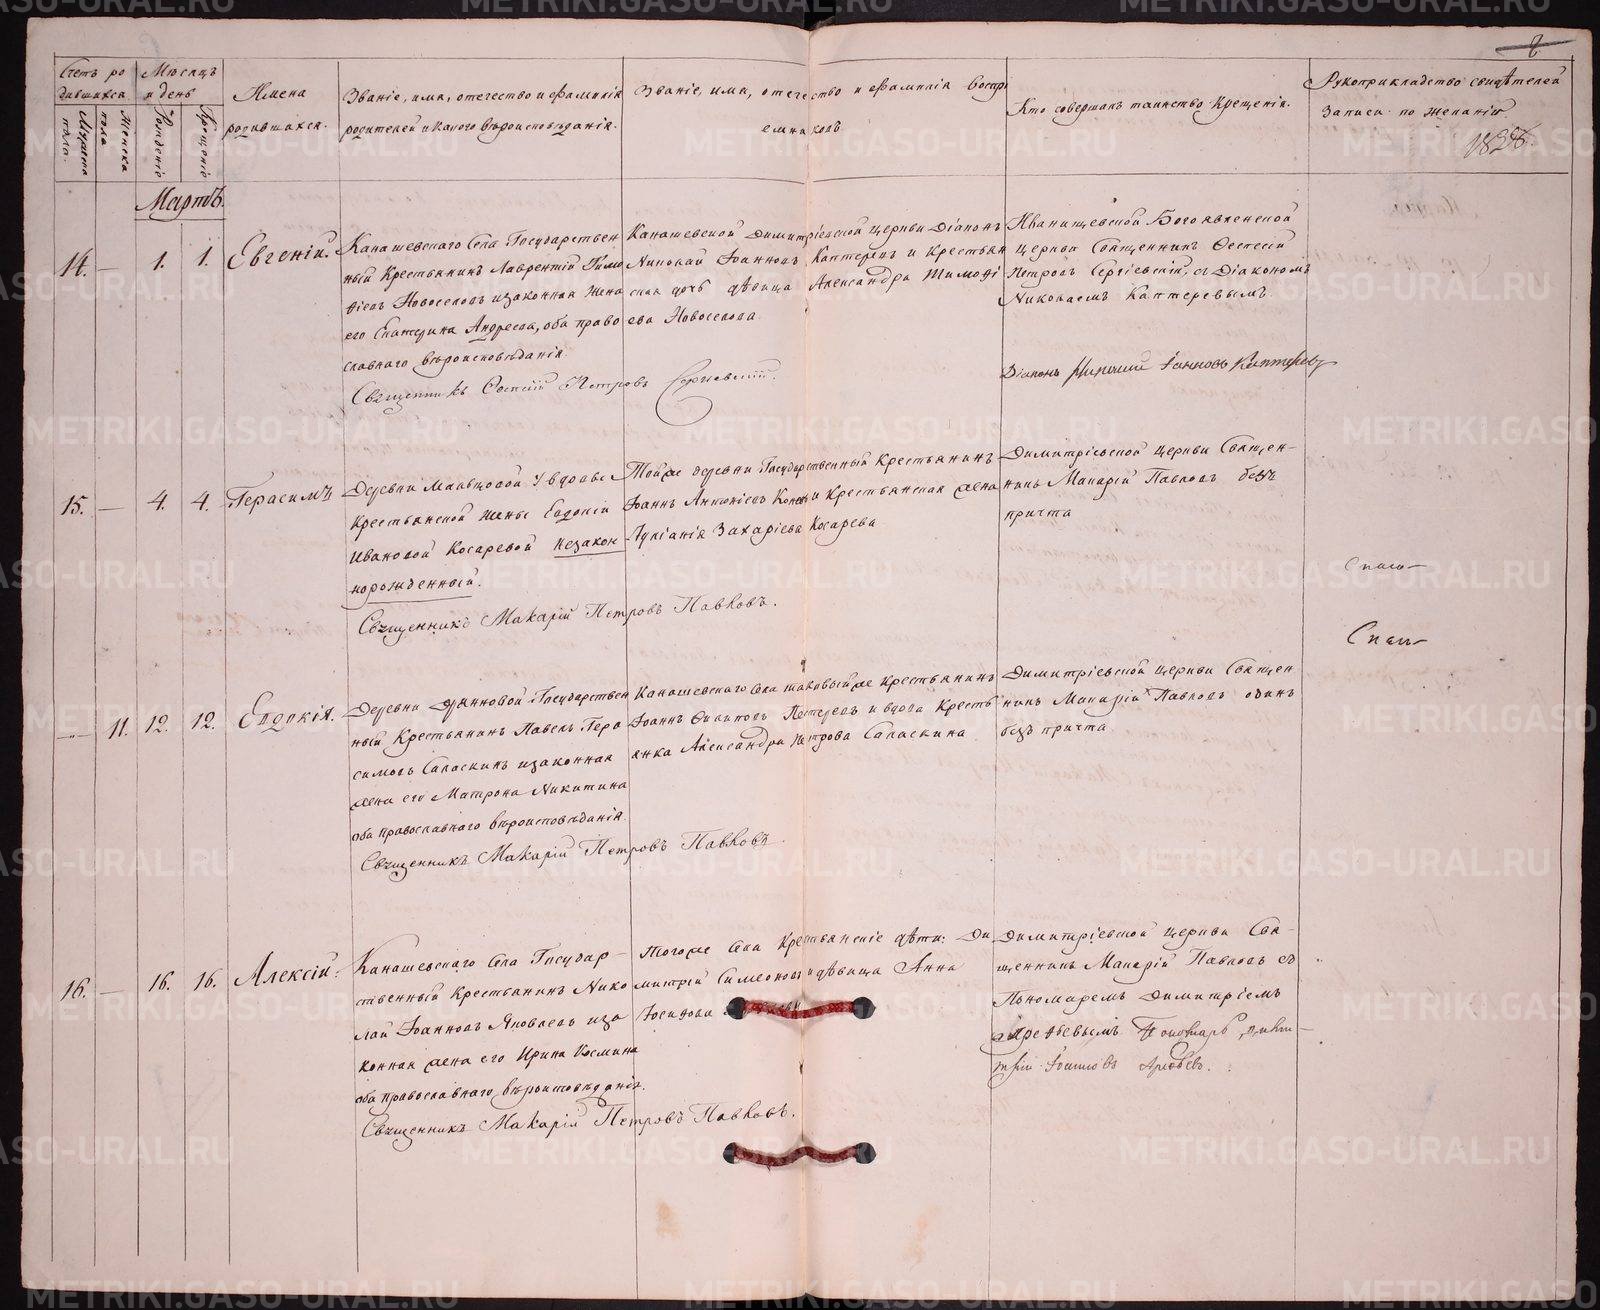 Счетъ ро
дившихся
Мужеска
пола.
Женска
пола
Мѣсяцъ
и день
Рожденіе
Крещеніе
Имена
родившихся.
Званіе, имя, отечество и фамилія
родителей и какого вѣроисповѣданія.
Званіе, имя, отечество и фамилія воспрі
емниковъ
Кто совершалъ таинство крещенія.
Рукоприкладство свидѣтелей
записи по желанію
Мартъ.
14. — 1. 1. Евгеній.
Канашевскаго Села Государствен
ный Крестьянинъ Лаврентій Тимо
ѳіевъ Новоселовъ и законная жена
его Екатерина Андреева, оба право
славнаго вѣроисповѣданія.
Священникъ Петровъ Сергіевскій.
Канашевской Димитріевской церкви Діаконъ
Николай Іоанновъ Каптеревъ и Крестьян
ская дочь дѣвица Александра Тимоѳі
ева Новоселова.
Иванищевской Богоявленской
церкви Священникъ
Петровъ Сергіевскій, съ Діакономъ
Николаемъ Каптеревымъ.
Діаконъ Николай Іанновъ Каптеревъ
15. — 4. 4. Герасимъ
Деревни у вдовы
Крестьянской жены Евдокіи
Ивановой Косаревой незакон
норожденный.
Священникъ Макарій Петровъ Павловъ.
Тойже деревни Государственный Крестьянинъ
Іоаннъ Антоніевъ и Крестьянская жена
Захаріева Косарева
Димитріевской церкви Священ-
никъ Макарій Павловъ безъ
причта
— 11. 12. 12. Евдокія.
Деревни Государствен
ный Крестьянинъ Павелъ Гера
симовъ Саласкинъ и законная
жена его Матрона Никитина
оба православнаго вѣроисповѣданія.
Священникъ Макарій Петровъ Павловъ.
Канашевскаго Села таковыйже крестьянинъ
Іоаннъ Филиповъ и вдова Кресть
янка Александра Петрова Саласкина
Димитріевской церкви Священ
никъ Макарій Павловъ одинъ
безъ причта
16. — 16. 16. Алексій.
Канашевскаго Села Государ-
ственный Крестьянинъ Нико
лай Іоанновъ Яковлевъ и за
конная жена его Ирина Космина
оба православнаго вѣроисповѣданія.
Священникъ Макарій Петровъ Павловъ.
Тогоже Села Крестьянскіе дѣти: Ди
митрій Симеоновъ и дѣвица Анна
Іосифова
Димитріевской церкви Свя-
щенникъ Макарій Павловъ съ
Пономаремъ Димитріемъ
Арефьевымъ Пономарь Дими-
трій Арефьевъ.
METRIKI.GASO-URAL.RU